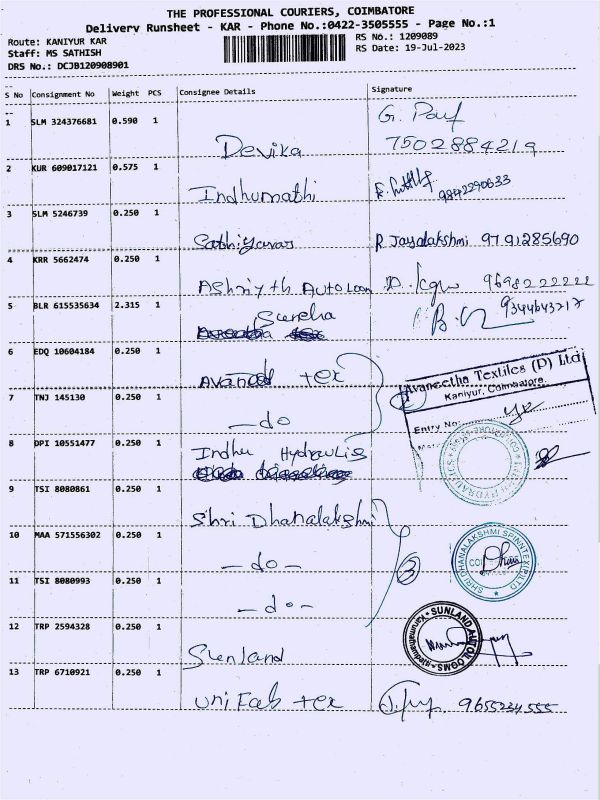 THE PROFESSIONAL COURIERS, COIMBATORE
Delivery Runsheet - KAR - Phone No.:0422-3505555 - Page No.:1
Route: KANIYUR KAR
RS No.: 1209089
Staff: MS SATHISH
RS Date: 19-Jul-2023
DRS No.: DCJB120908901
S No Consignment No Weight PCS Consignee Details Signature
1 SLM 324376681 0.590 1 Devika
7502884219
2 KUR 609017121 0.575 1 Indhumathi 9842290633
3 SLM 5246739 0.250 1 Sathiyavas R Jayalakshmi 9791285690
4 KRR 5662474 0.250 1 Ashriyth Autoloom 9698222222
5 BLR 615535634 2.315 1 Surekha 9344643217
6 EDQ 10604184 0.250 1 tex
Avaneetha Textiles (P) Ltd
Kaniyur, Coimbatore.
Entry No:
7 TNJ 145130 0.250 1 -do
8 DPI 10551477 0.250 1 Indhu Hydraulis
9 TSI 8080861 0.250 1 Shri Dhanalakshmi
10 MAA 571556302 0.250 1 -do-
SHRI DHANALAKSHMI SPINNTEX (P) LTD
11 TSI 8080993 0.250 1 -do-
12 TRP 2594328 0.250 1 Sunland
SUNLAND AUTOLOOMS
13 TRP 6710921 0.250 1 uniFab tex 9655234555